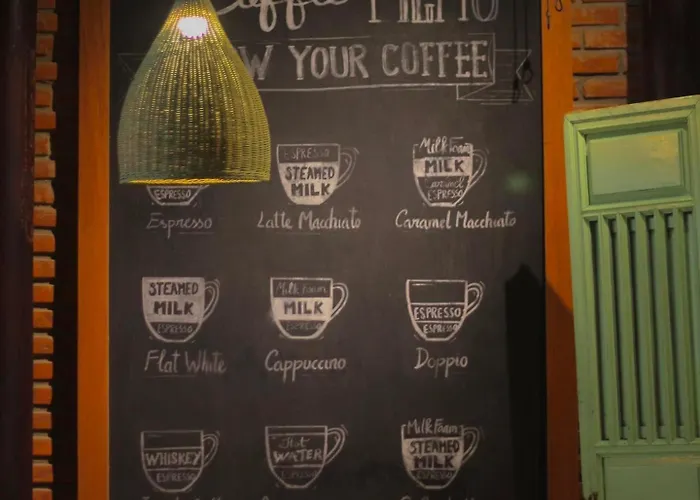 Coffee MENU
YOUR COFFEE
ESPRESSO
Espresso
ESPRESSO
STEAMED
MILK
Latte Macchiato
Milk Foam
MILK
Caramel
ESPRESSO
Caramel Macchiato
STEAMED
MILK
ESPRESSO
Flat White
Milk Foam
MILK
ESPRESSO
Cappuccino
ESPRESSO
ESPRESSO
Doppio
WHISKEY
ESPRESSO
Hot
WATER
ESPRESSO
Milk Foam
STEAMED
MILK
ESPRESSO